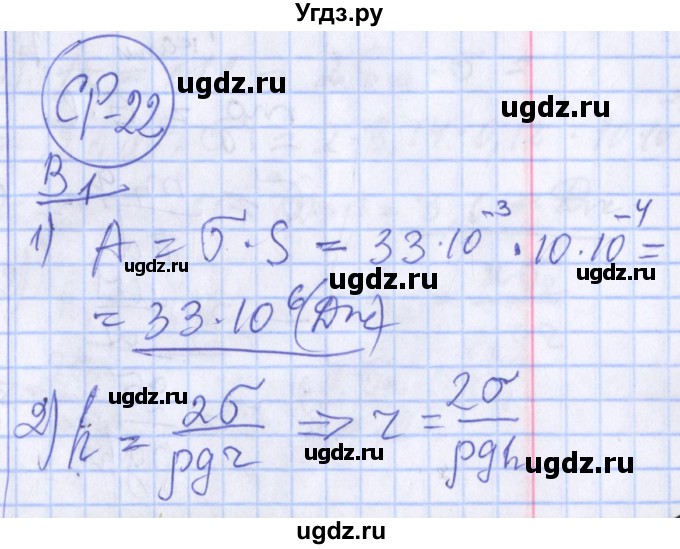 Угдз.ру
СР-22
ugdz.ru
ugdz.ru
В1
1) A = σ · S = 33 · 10⁻³ · 10 · 10⁻⁴ =
ugdz.ru ugdz.ru ugdz.ru
= 33 · 10⁶ (Дж)
ugdz.ru
2) h = 2σ/ρgr ⇒ r = 2σ/ρgh
ugdz.ru ugdz.ru ugdz.ru
ugdz.ru